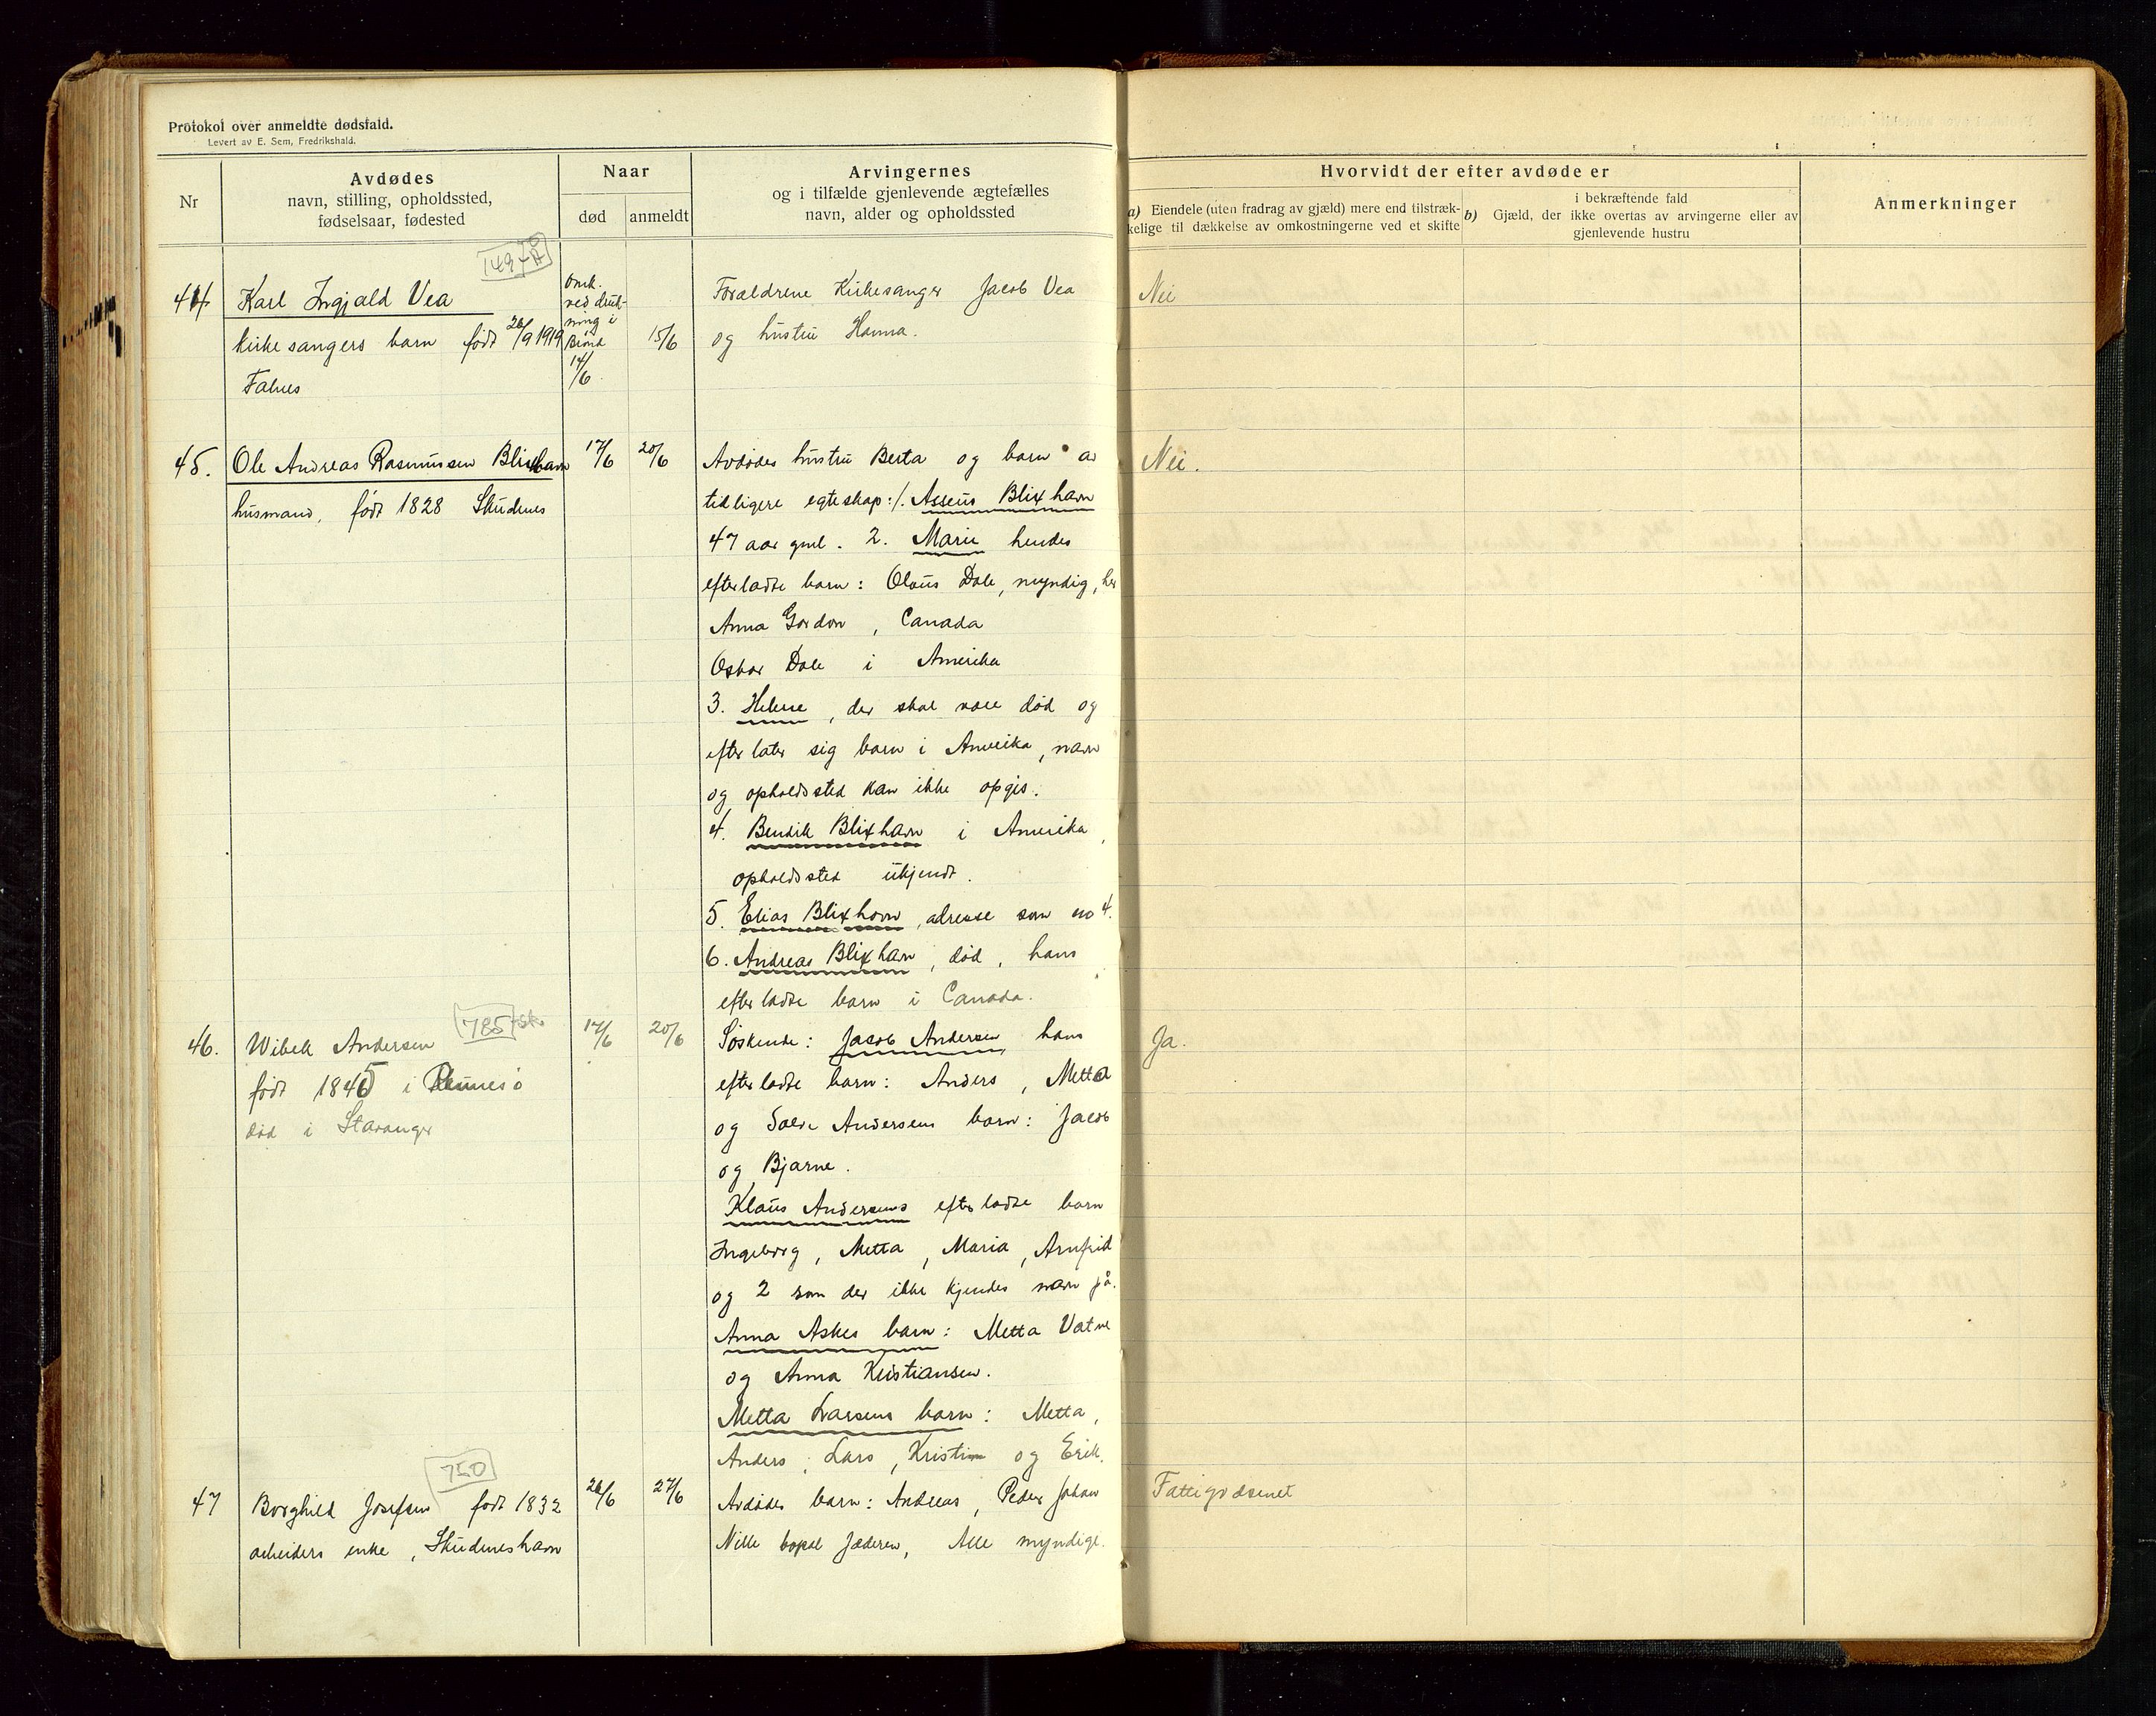 Protokol over anmeldte dødsfald.
Levert av E. Sem, Fredrikshald.
Nr
Avdødes
navn, stilling, opholdssted,
fødselsaar, fødested
Naar
død
anmeldt
Arvingernes
og i tilfælde gjenlevende ægtefælles
navn, alder og opholdssted
Hvorvidt der efter avdøde er
a) Eiendele (uten fradrag av gjæld) mere end tilstræk-
kelige til dækkelse av omkostningerne ved et skifte
i bekræftende fald
b) Gjæld, der ikke overtas av arvingerne eller av
gjenlevende hustru
Anmerkninger
44
Karl Ingjald Vea
kirkesangers barn født 26/9 1919
Falnes
Omk.
ved druk-
ning i
Brønd
14/6
15/6
Forældrene Kirkesanger Jacob Vea
og hustru Hanna.
Nei
45.
Ole Andreas Rasmussen Blixhavn
husmand, født 1828 Skudenes
17/6
20/6
Avdødes hustru Berta og barn av
tidligere egteskap: 1. Asseus Blixhavn
47 aar gml. 2. Marie hendes
efterladte barn: Olaus Dale, myndig, her
Anna Gordon, Canada
Oskar Dale i Amerika
3. Helene, der skal være død og
efterlater sig barn i Amerika, navn
og opholdssted kan ikke opgis.
4. Bendik Blixhavn i Amerika,
opholdssted ukjendt.
5. Elias Blixhavn, adresse som no 4.
6. Andreas Blixhavn, død, hans
efterladte barn i Canada.
Nei.
46.
785
Wibek Andersen
født 1845 i Rennesø
død i Stavanger
17/6
20/6
Søskende: Jacob Andersen, hans
efterladte barn: Anders, Metta
og Andersens barn: Jacob
og Bjarne.
Klaus Andersens efterladte barn
Ingeborg, Metta, Maria, Arnfrid
og 2 som der ikke kjendes navn på.
Anna Askes barn: Metta Vatne
og Anna Kristiansen.
Metta Larsens barn: Metta,
Anders, Lars, Kristine og Erik.
Ja.
47
750
Borghild Josefsen født 1832
arbeiders enke, Skudeneshavn
26/6
27/6
Avdødes barn: Andreas, Peder Johan
Nille bopel Jæderen, Alle myndige.
Fattigvæsenet